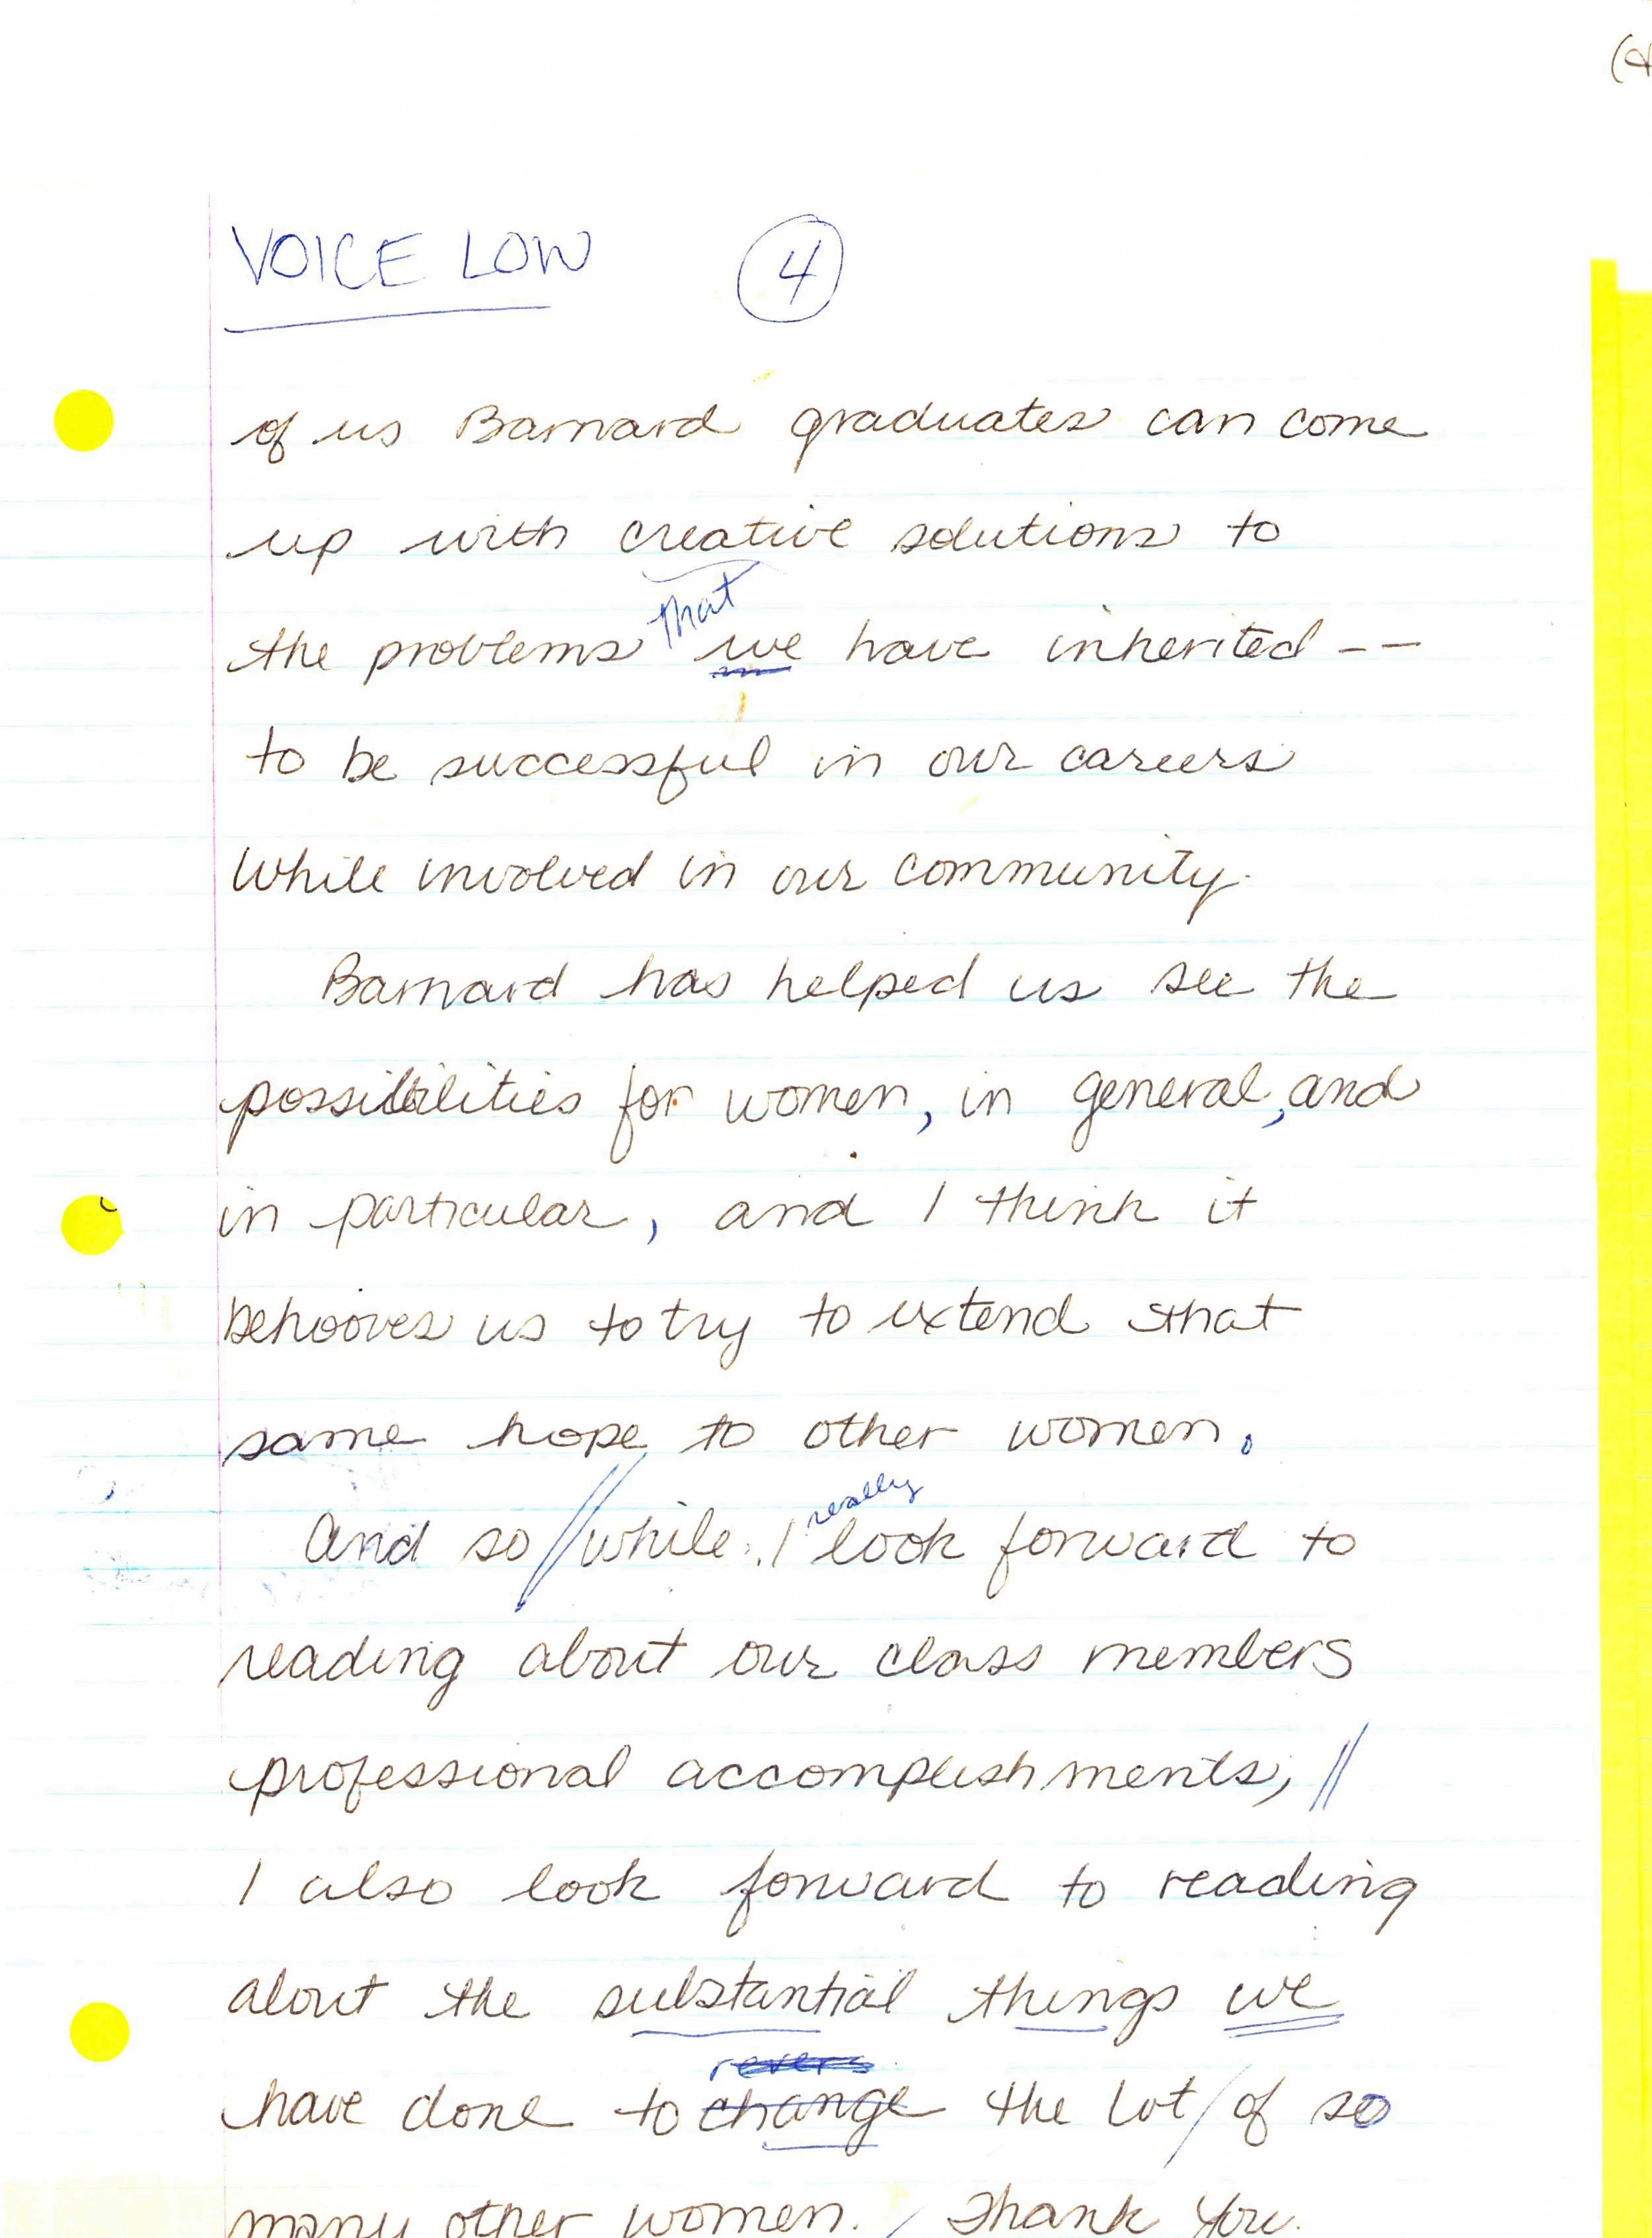 VOICE LOW 4
of us Barnard graduates can come
up with creative solutions to
the problems that we have inherited --
to be successful in our careers
while involved in our community.
Barnard has helped us see the
possibilities for women, in general, and
in particular, and I think it
behooves us to try to extend that
same hope to other women.
And so // while I really look forward to
reading about our class members
professional accomplishments, //
I also look forward to reading
about the substantial things we
revers
have done to change the lot / of so
many other women. / Thank you.